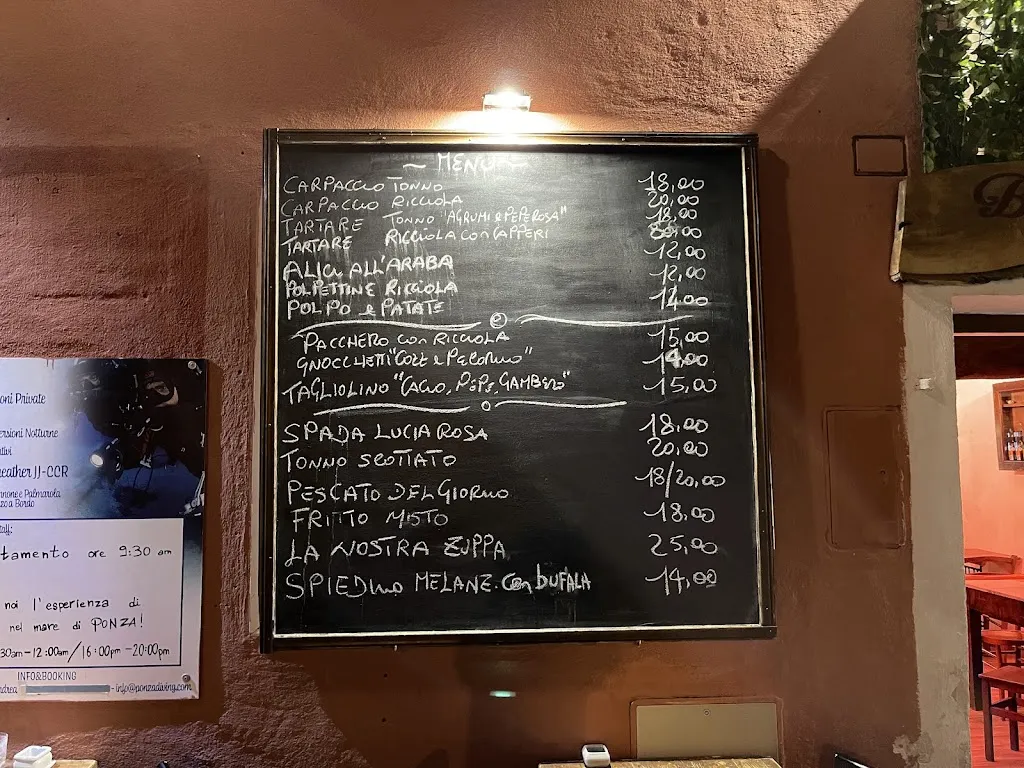 ~ MENU ~
CARPACCIO TONNO 18,00
CARPACCIO RICCIOLA 20,00
TARTARE TONNO "AGRUMI e PEPE ROSA" 18,00
TARTARE RICCIOLA con CAPPERI
ALICI ALL'ARABA 12,00
POLPETTINE RICCIOLA 12,00
POLPO e PATATE 12,00
PACCHERO con RICCIOLA 15,00
GNOCCHETTI "COZZE e PECORINO" 14,00
TAGLIOLINO "CACIO, PEPE, GAMBERO" 15,00
SPADA LUCIA ROSA 18,00
TONNO SCOTTATO 20,00
PESCATO DEL GIORNO 18/20,00
FRITTO MISTO 18,00
LA NOSTRA ZUPPA 25,00
SPIEDINO MELANZ. con bUFALA 14,00
oni Private
ersioni Notturne
tivi
eather JJ-CCR
nnone e Palmarola
zo a Bordo
taff:
tamento ore 9:30 am
noi l'esperienza di
nel mare di PONZA!
30am-12:00am/16:00pm-20:00pm
INFO&BOOKING
ndrea - info@ponzadiving.com
B